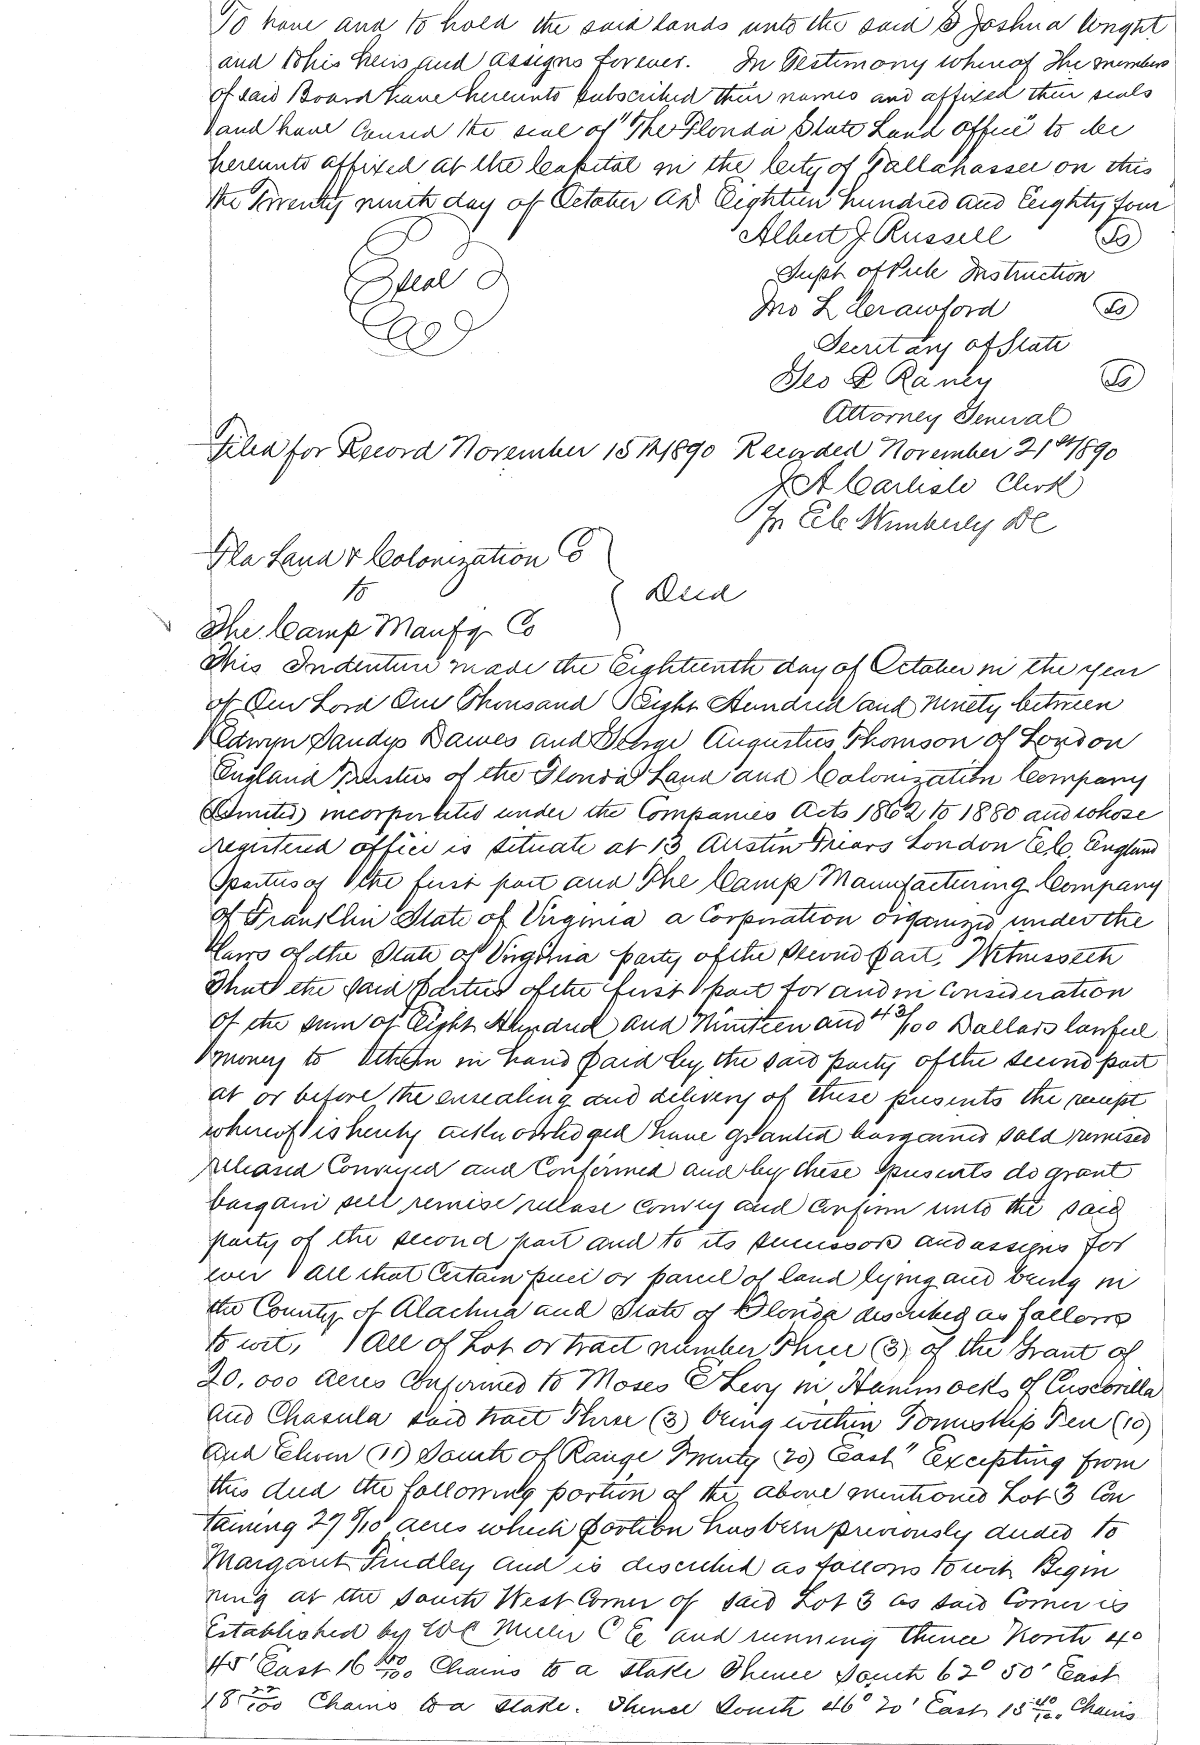 To have and to hold the said lands unto the said S Joshua Wright
and to his heirs and assigns forever. In Testimony whereof The members
of said Board have hereunto subscribed their names and affixed their seals
and have caused the seal of "The Florida State Land office" to be
hereunto affixed at the Capital in the City of Tallahassee on this
the Twenty ninth day of October AD Eighteen hundred and Eighty four
Albert J Russell Ls
Seal
Supt of Pub Instruction
Jno L Crawford Ls
Secretary of State
Geo P Raney Ls
Attorney General
Filed for Record November 15th 1890 Recorded November 21st 1890
J A Carlisle Clerk
Pr Wimberly DC
Fla Land & Colonization Co
to
Deed
The Camp Manfg Co
This Indenture made the Eighteenth day of October in the year
of Our Lord One Thousand Eight Hundred and Ninety between
Edwyn Sandys Dawes and George Augustus Thomson of London
England Trustees of the Florida Land and Colonization Company
(Limited) incorporated under the Companies Acts 1862 to 1880 and whose
registered office is situate at 13 Austin Friars London E.C. England
parties of the first part and The Camp Manufacturing Company
of Franklin State of Virginia a Corporation organized under the
laws of the State of Virginia party of the second part, Witnesseth
That the said parties of the first part for and in consideration
of the sum of Eight Hundred and Nineteen and 43/100 Dollars lawful
money to them in hand paid by the said party of the second part
at or before the ensealing and delivery of these presents the receipt
whereof is hereby acknowledged have granted bargained sold remised
released Conveyed and Confirmed and by these presents do grant
bargain sell remise release convey and confirm unto the said
party of the second part and to its successors and assigns for
ever All that Certain piece or parcel of land lying and being in
the County of Alachua and State of Florida described as follows
to wit, All of Lot or tract number Three (3) of the Grant of
20,000 acres Confirmed to Moses E Levy in Hammocks of Cuscorilla
and Chasula said tract Three (3) being within Township Ten (10)
and Eleven (11) South of Range Twenty (20) East" Excepting from
this deed the following portion of the above mentioned Lot 3 Con
taining 27 9/10 acres which portion has been previously deeded to
Margaret Findley and is described as follows to wit Begin
ning at the South West Corner of said Lot 3 as said Corner is
Established by W C Miller C E and running thence North 4°
45' East 16 Chains to a stake Thence South 62° 50' East
18 /100 Chains to a stake. Thence South 46° 20' East 15 40/100 Chains